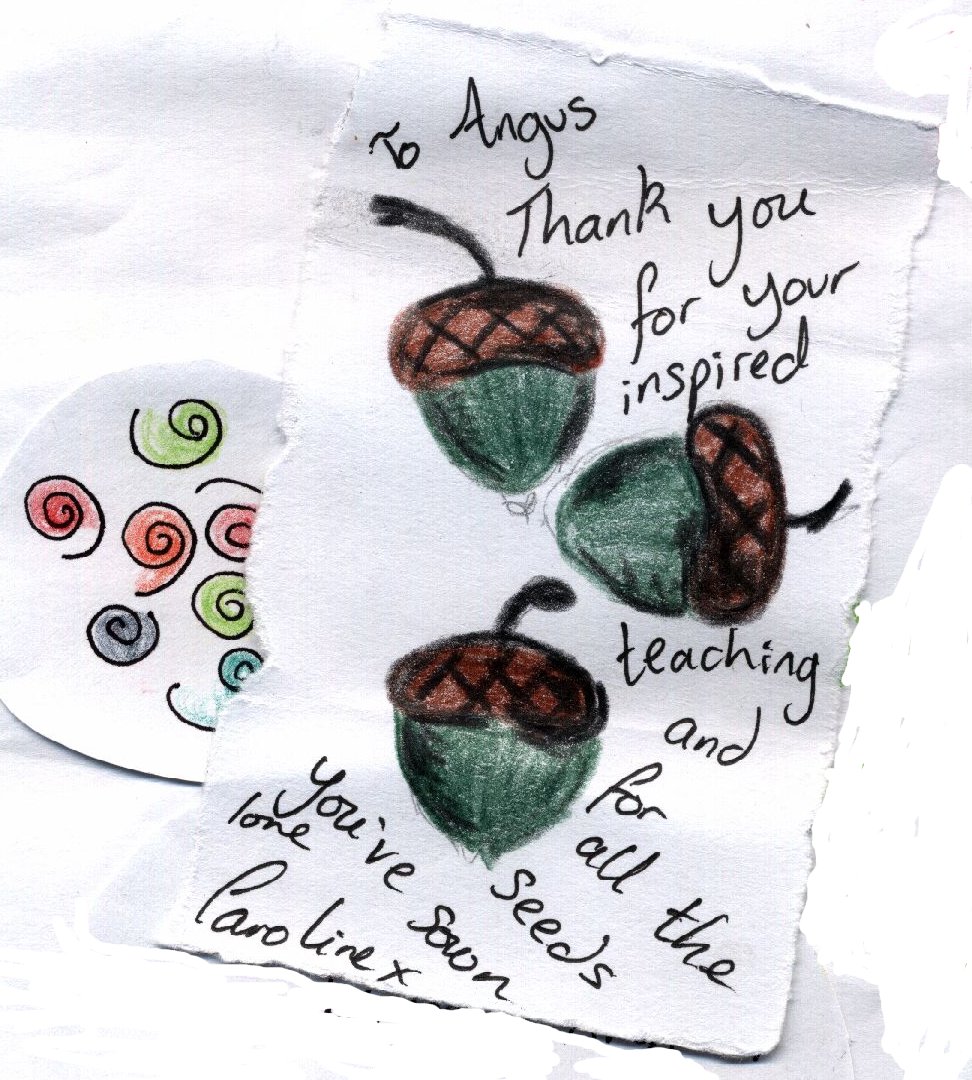 To Angus
Thank you
for your
inspired
teaching
and
for
all the
seeds
you've sown
love
Caroline x